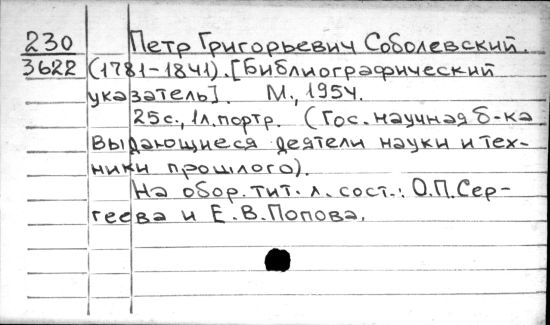 230 Петр Григорьевич Соболевский.
3622 (1781-1841). [Библиографический
указатель]. М., 1954.
25с., 1л. портр. (Гос. научная б-ка
Выдающиеся деятели науки и тех-
ники прошлого).
На обор. тит. л. сост.: О.П. Сер-
геева и Е.В. Попова.